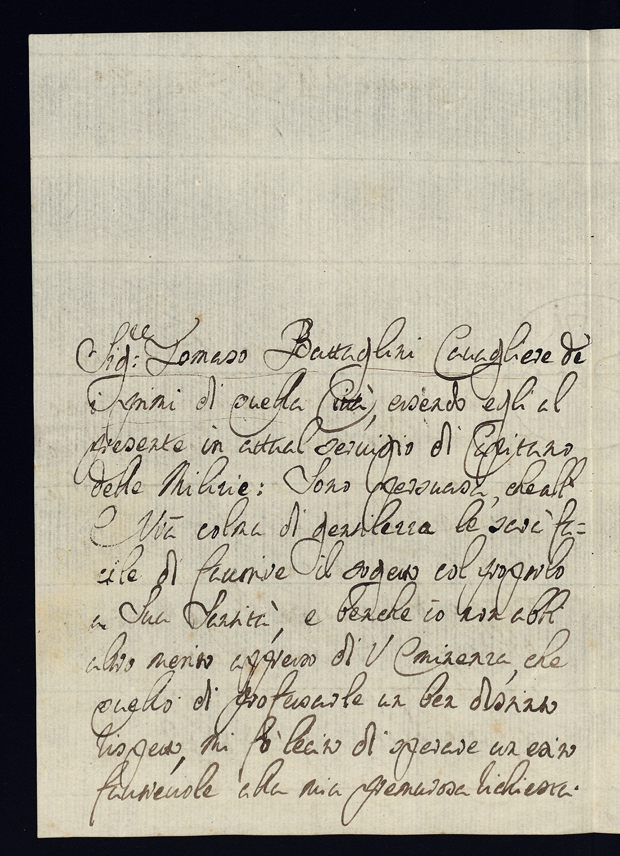 Sig:re Tomaso Battaglini Cavagliere de
i Primi di quella Città, essendo egli al
presente in attual servigio di Capitano
delle Milizie: Sono persuasa, che all'
E Vrã colma di gentilezza le sarà fa=
cile di favorire il sogetto col proporlo
a Sua Santità, e benche io non abbi
altro merito appresso di V Eminenza, che
quello di professarle un ben distinto
rispetto, mi fò lecito di sperare un esito
favorevole alla mia premurosa richiesta.